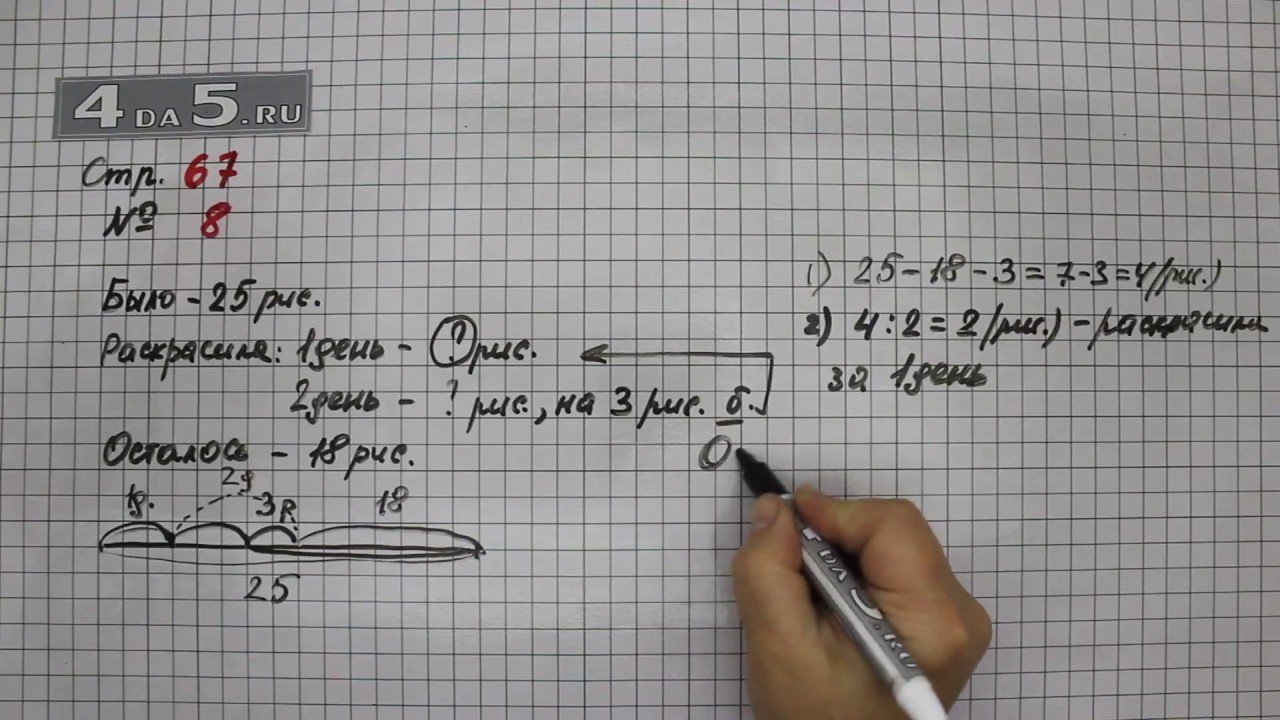 4 DA 5.RU
Стр. 67
№ 8
Было - 25 рис.
Раскрасила: 1 день - ? рис.
2 день - ? рис., на 3 рис. б.
Осталось - 18 рис.
1д. 2д 3 р. 18
25
1) 25 - 18 - 3 = 7 - 3 = 4 (рис.)
2) 4 : 2 = 2 (рис.) - раскрасила
за 1 день
О
DA 5.RU